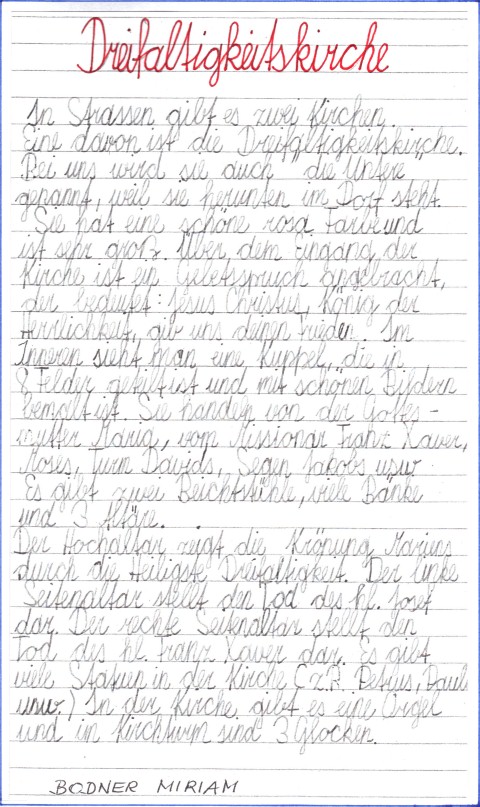 Dreifaltigkeitskirche
In Strassen gibt es zwei Kirchen.
Eine davon ist die Dreifaltigkeitskirche.
Bei uns wird sie auch die Untere
genannt, weil sie herunten im Dorf steht.
Sie hat eine schöne rosa Farbe und
ist sehr groß. Über dem Eingang der
Kirche ist ein Gebetsspruch angebracht,
der bedeutet: Jesus Christus, König der
Herrlichkeit, gib uns deinen Frieden. Im
Inneren sieht man eine Kuppel, die in
8 Felder geteilt ist und mit schönen Bildern
bemalt ist. Sie handeln von der Gottes-
mutter Maria, vom Missionar Franz Xaver,
Moses, Turm Davids, Segen Jakobs usw.
Es gibt zwei Beichtstühle, viele Bänke
und 3 Altäre.
Der Hochaltar zeigt die Krönung Mariens
durch die Heiligste Dreifaltigkeit. Der linke
Seitenaltar stellt den Tod des hl. Josef
dar. Der rechte Seitenaltar stellt den
Tod des hl. Franz Xaver dar. Es gibt
viele Statuen in der Kirche (z.B. Petrus, Paulus
usw.) In der Kirche gibt es eine Orgel
und im Kirchturm sind 3 Glocken.
BODNER MIRIAM